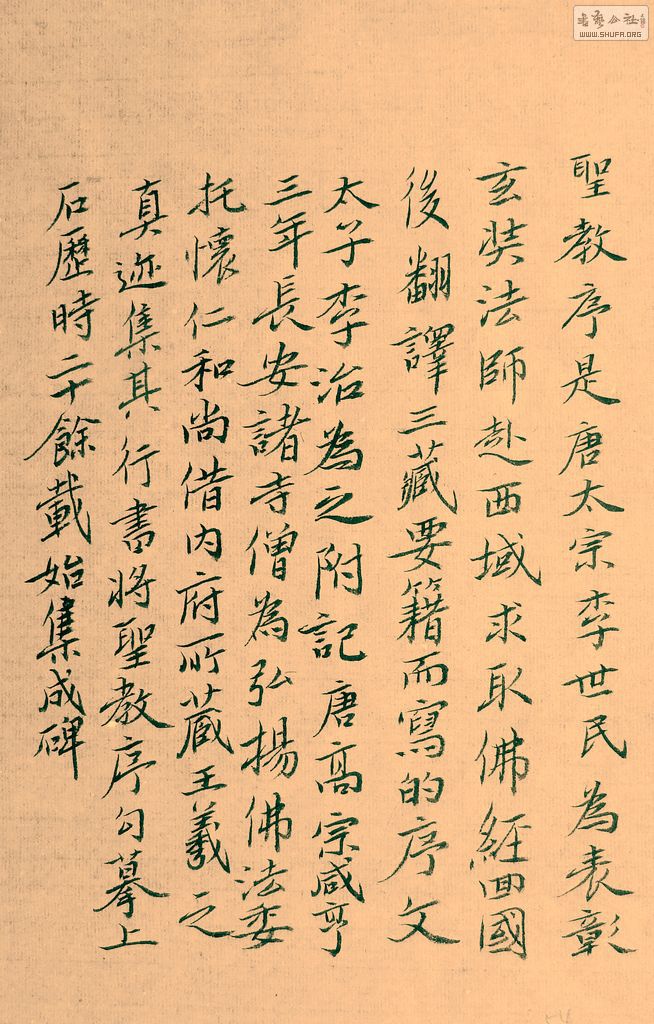 聖教序是唐太宗李世民為表彰
玄奘法師赴西域求取佛經回國
後翻譯三藏要籍而寫的序文
太子李治為之附記唐高宗咸亨
三年長安諸寺僧為弘揚佛法委
托懷仁和尚借内府所藏王羲之
真迹集其行書將聖教序勾摹上
石歷時二十餘載始集成碑
WWW.SHUFA.ORG